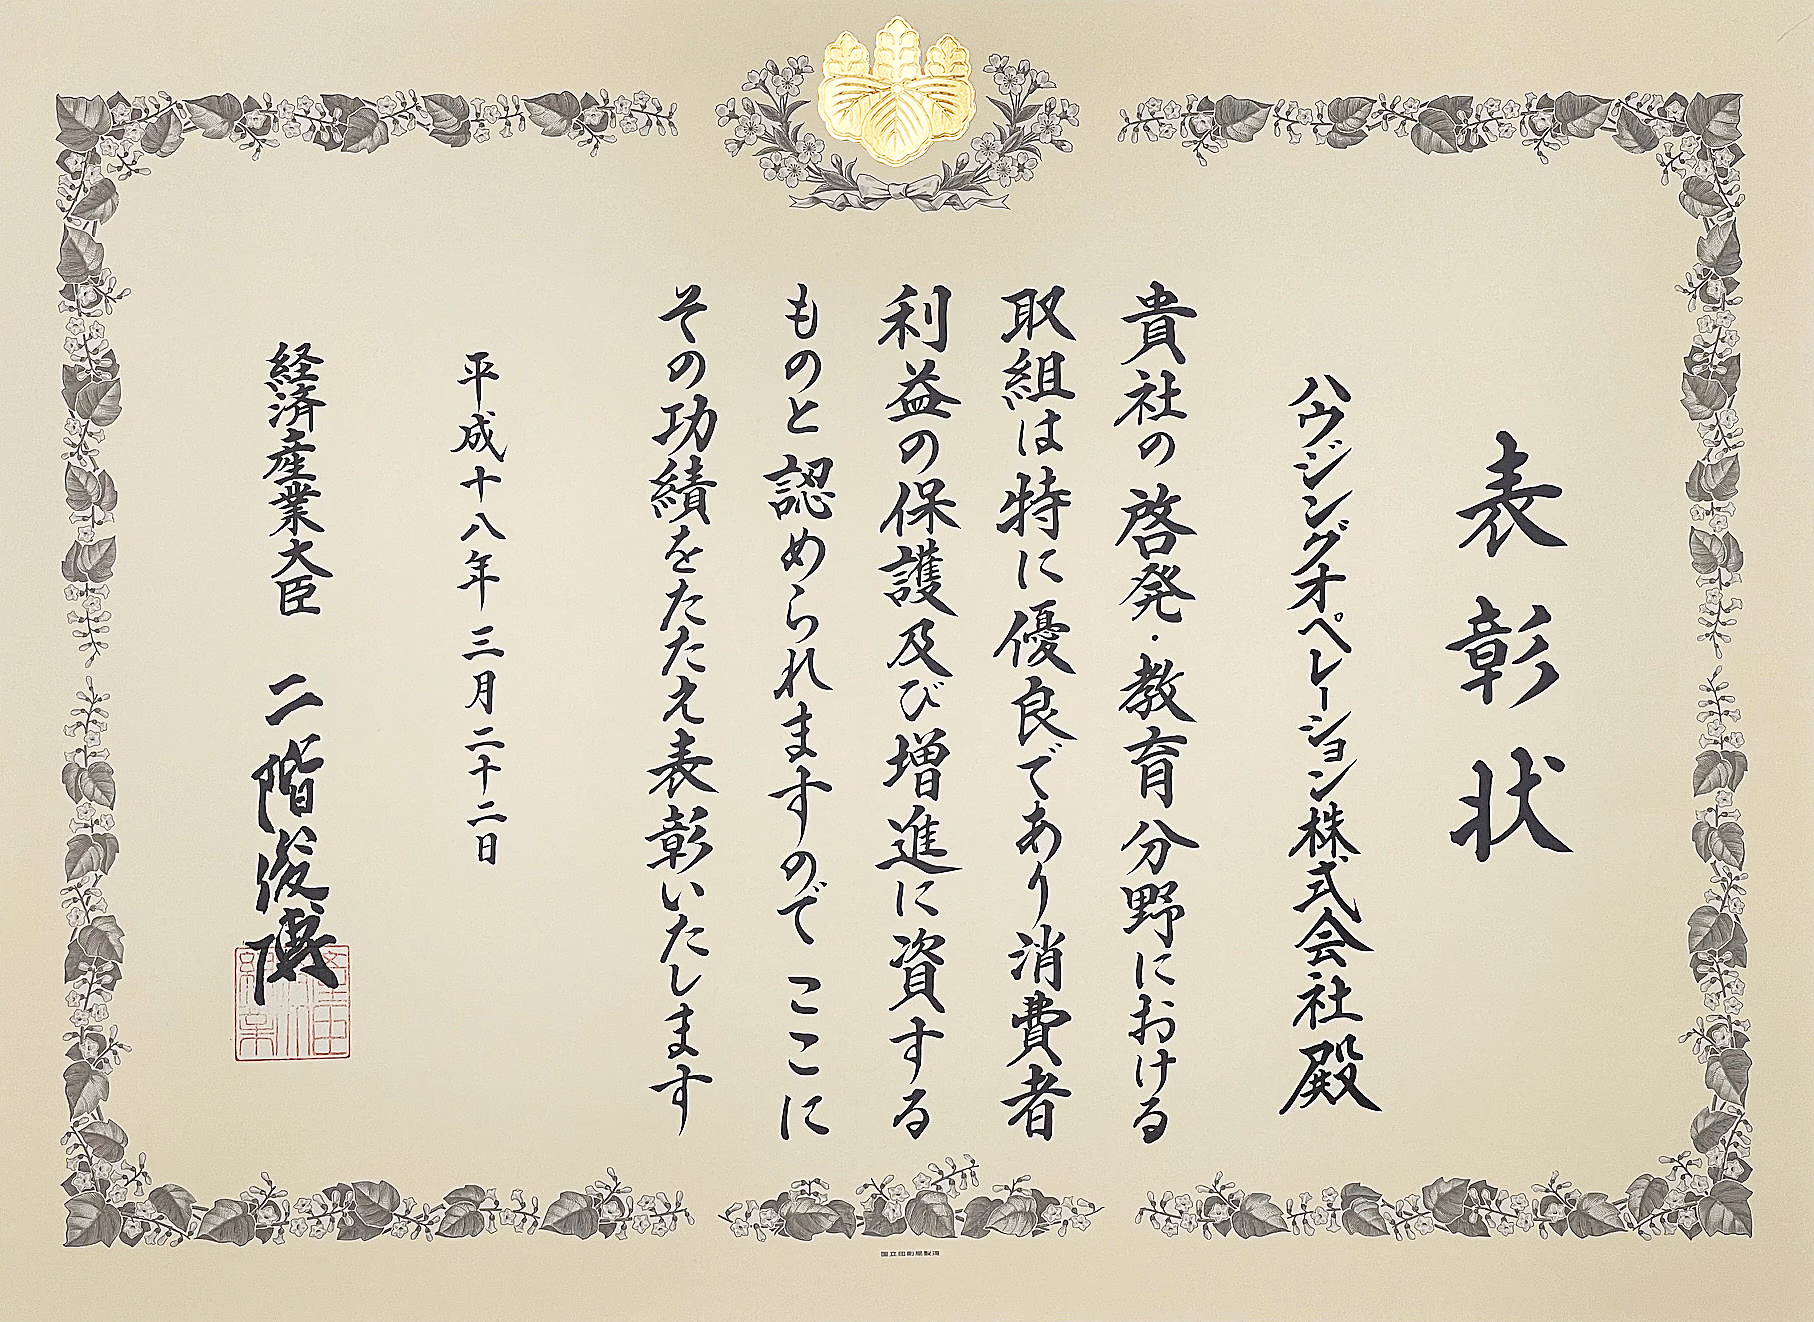 表彰状
ハウジングオペレーション株式会社殿
貴社の啓発・教育分野における
取組は特に優良であり消費者
利益の保護及び増進に資する
ものと認められますので ここに
その功績をたたえ表彰いたします
平成十八年三月二十二日
経済産業大臣 二階俊博
国立印刷局製造